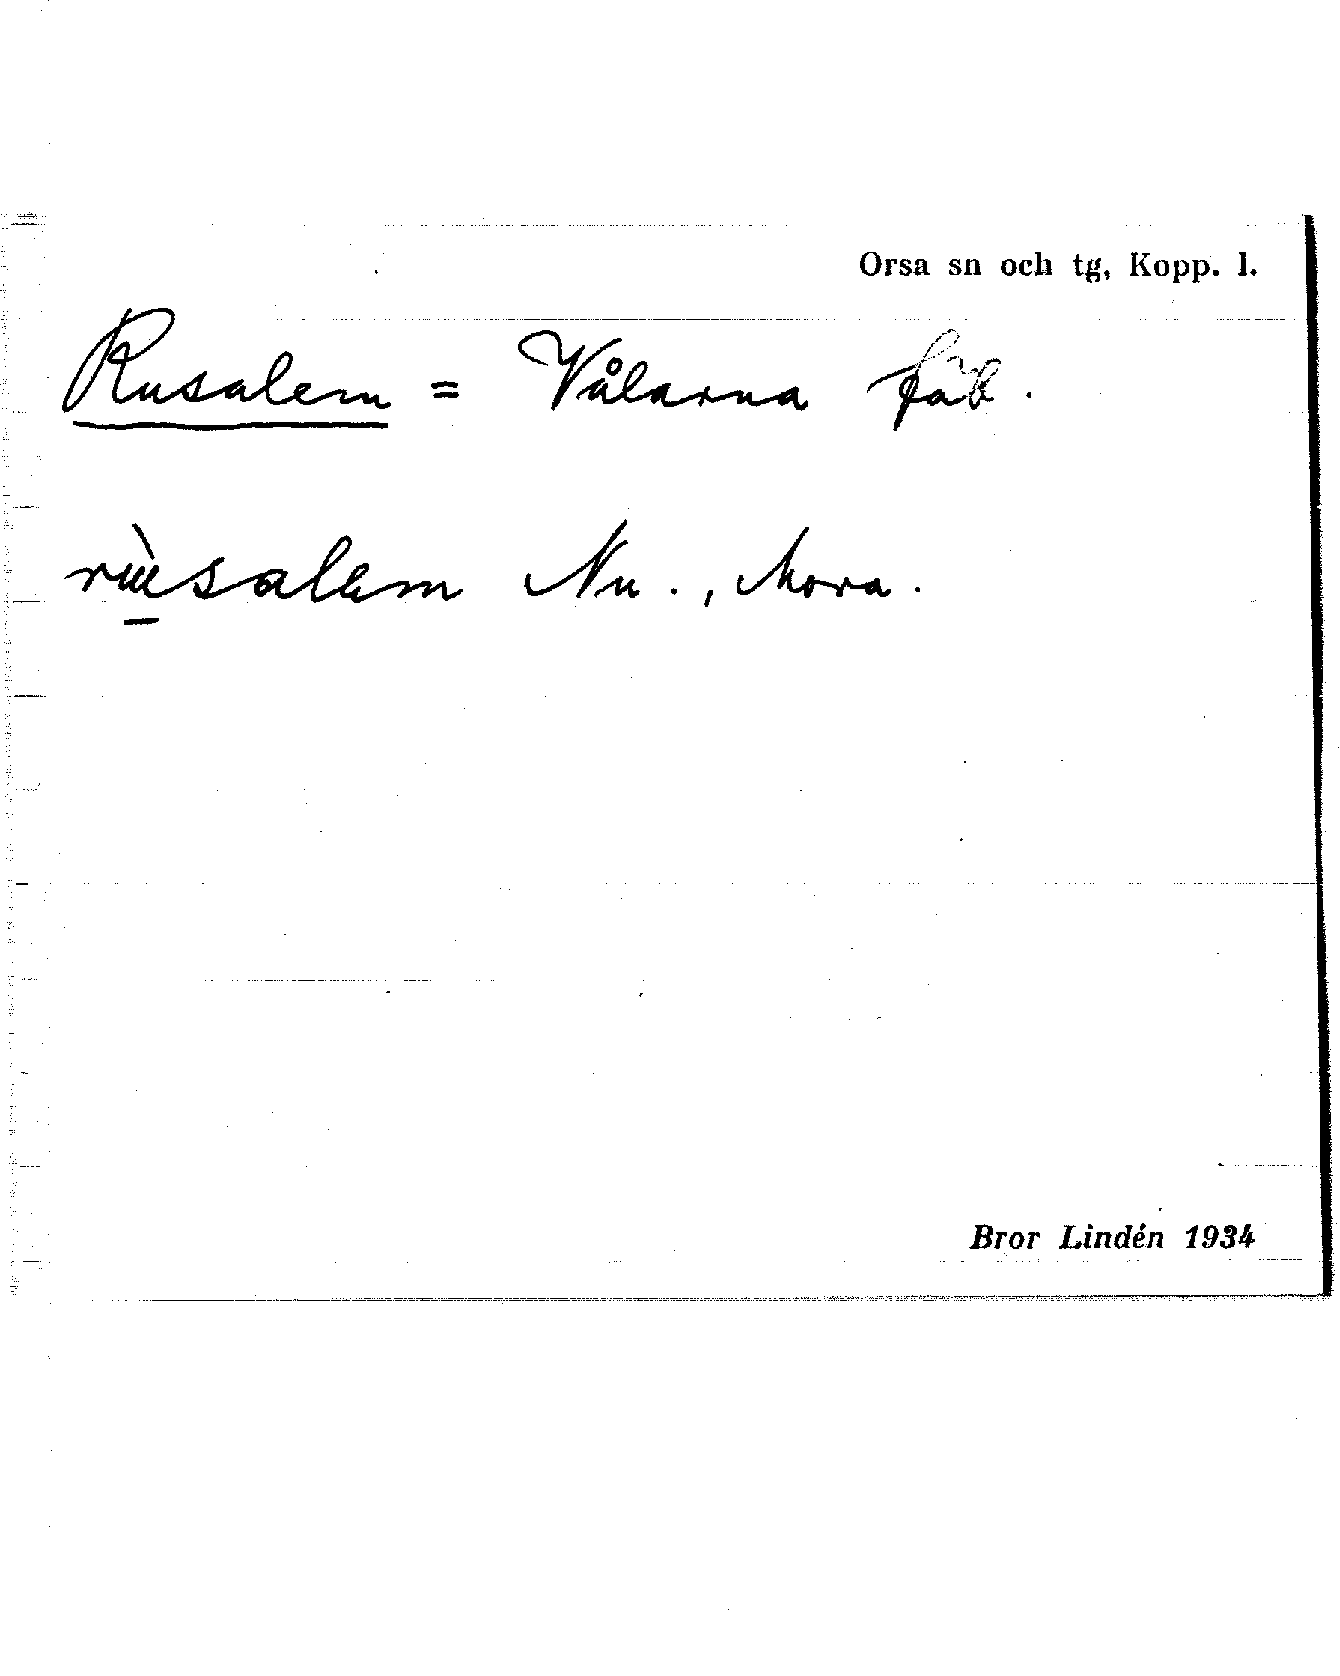 Orsa sn och tg, Kopp. l.
Rusalem = Vålarna fäb.
rùsalem Nu., Mora.
Bror Lindén 1934